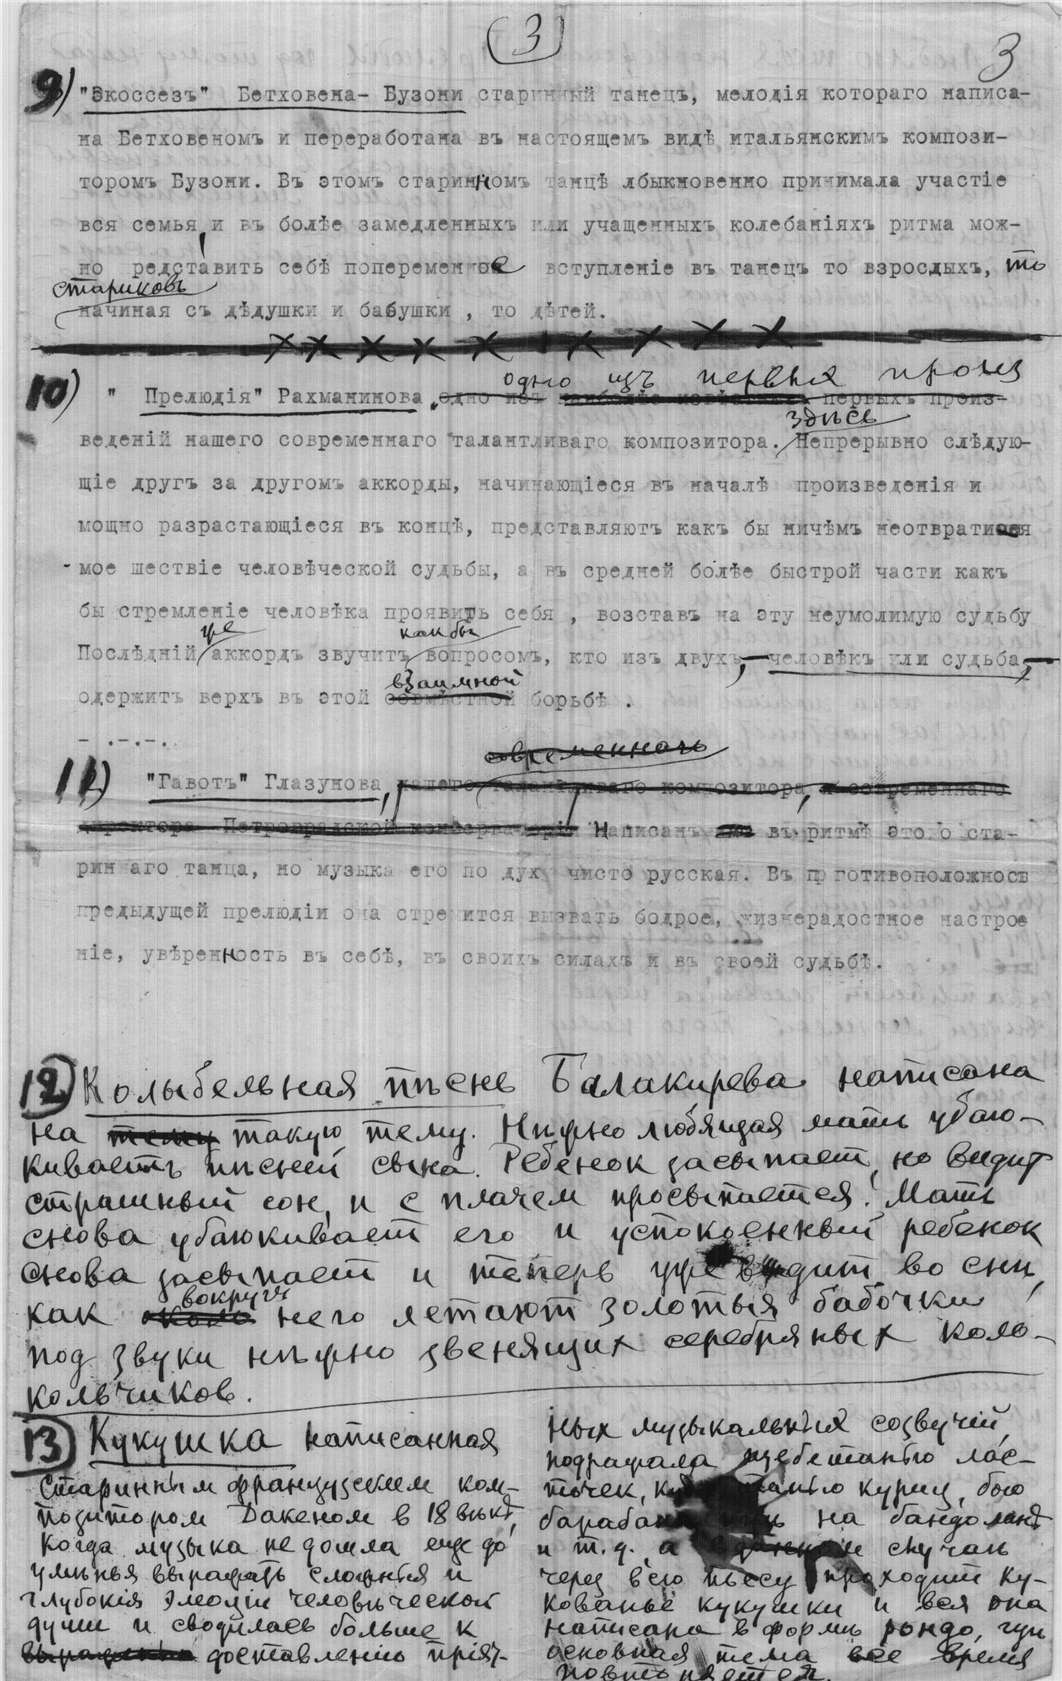 (3)
3
9) "Экоссезъ" Бетховена- Бузони старинный танецъ, мелодія котораго написа-
на Бетховеномъ и переработана въ настоящемъ видѣ итальянскимъ компози-
торомъ Бузони. Въ этомъ старинномъ танцѣ лбыкновенно принимала участіе
вся семья, и въ болѣе замедленныхъ или учащенныхъ колебаніяхъ ритма мож-
но редставить себѣ попеременное вступленіе въ танецъ то взрослыхъ, то
стариковъ
начиная съ дѣдушки и бабушки , то дѣтей.
одно изъ первыхъ произ
10) " Прелюдія" Рахманинова, одно изъ наиболѣе извѣстныхъ первыхъ произ-
здѣсь
веденій нашего современнаго талантливаго композитора. Непрерывно слѣдую-
щіе другъ за другомъ аккорды, начинающіеся въ началѣ произведенія и
мощно разрастающіеся въ концѣ, представляютъ какъ бы ничѣмъ неотврати
мое шествіе человѣческой судьбы, а въ средней болѣе быстрой части какъ
бы стремленіе человѣка проявить себя , возставъ на эту неумолимую судьбу
же как бы
Послѣдній аккордъ звучитъ вопросомъ, кто изъ двухъ,- человѣкъ или судьба,-
взаимной
одержитъ верхъ въ этой совмѣстной борьбѣ .
- .-.-.
современнаго
11) "Гавотъ" Глазунова, нашего талантливаго композитора, и современнаго
директора Петроградской консерваторіи Написанъ въ ритмѣ этого ста-
риннаго танца, но музыка его по духу чисто русская. Въ пр готивоположност
предыдущей прелюдіи она стремится вызвать бодрое, жизнерадостное настрое
ніе, увѣренность въ себѣ, въ своихъ силахъ и въ своей судьбѣ.
12) Колыбельная пѣснь Балакирева написана
на тему такую тему. Нѣжно любящая мать убаю-
киваетъ пѣсней сына. Ребенок засыпает, но видит
страшный сон, и с плачем просыпается. Мать
снова убаюкивает его и успокоенный ребенок
снова засыпает и теперь уже видит во снѣ,
вокруг
как около него летают золотыя бабочки
под звуки нѣжно звенящих серебряных коло-
кольчиков.
13) Кукушка написанная
старинным французским ком-
позитором Дакеном в 18 вѣкѣ,
когда музыка не дошла еще до
умѣнья выражать сложныя и
глубокія эмоціи человѣческой
души и сводилась больше к
выраженію доставленію прият-
ных музыкальных созвучій,
подражала щебетанью лас-
точек, куриц, бою
барабана на
и т.д., а в данном случаѣ
через всю пьесу проходит ку-
кованье кукушки и вся она
написана в формѣ рондо, гдѣ
основная тема все время
повторяется.